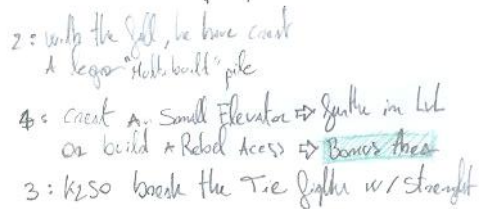 2: with the fall, he have creat
A lego "Multi built" pile
4: creat A Small Elevator ⇨ further in LvL
or build A Rebel Acess ⇨ Bonus Area
3: K2SO break the Tie fighter w/ Strenght